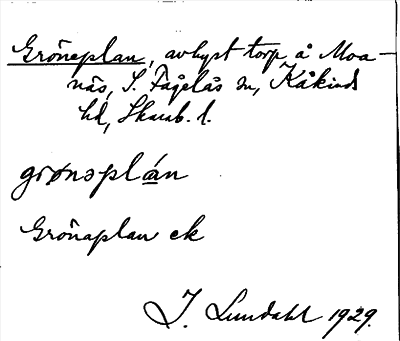 Gröneplan, avhyst torp å Moa-
näs, S. Fågelås sn, Kåkinds
hd, Skarab. l.
grønəplán
Grönaplan ek
I. Lundahl 1929.